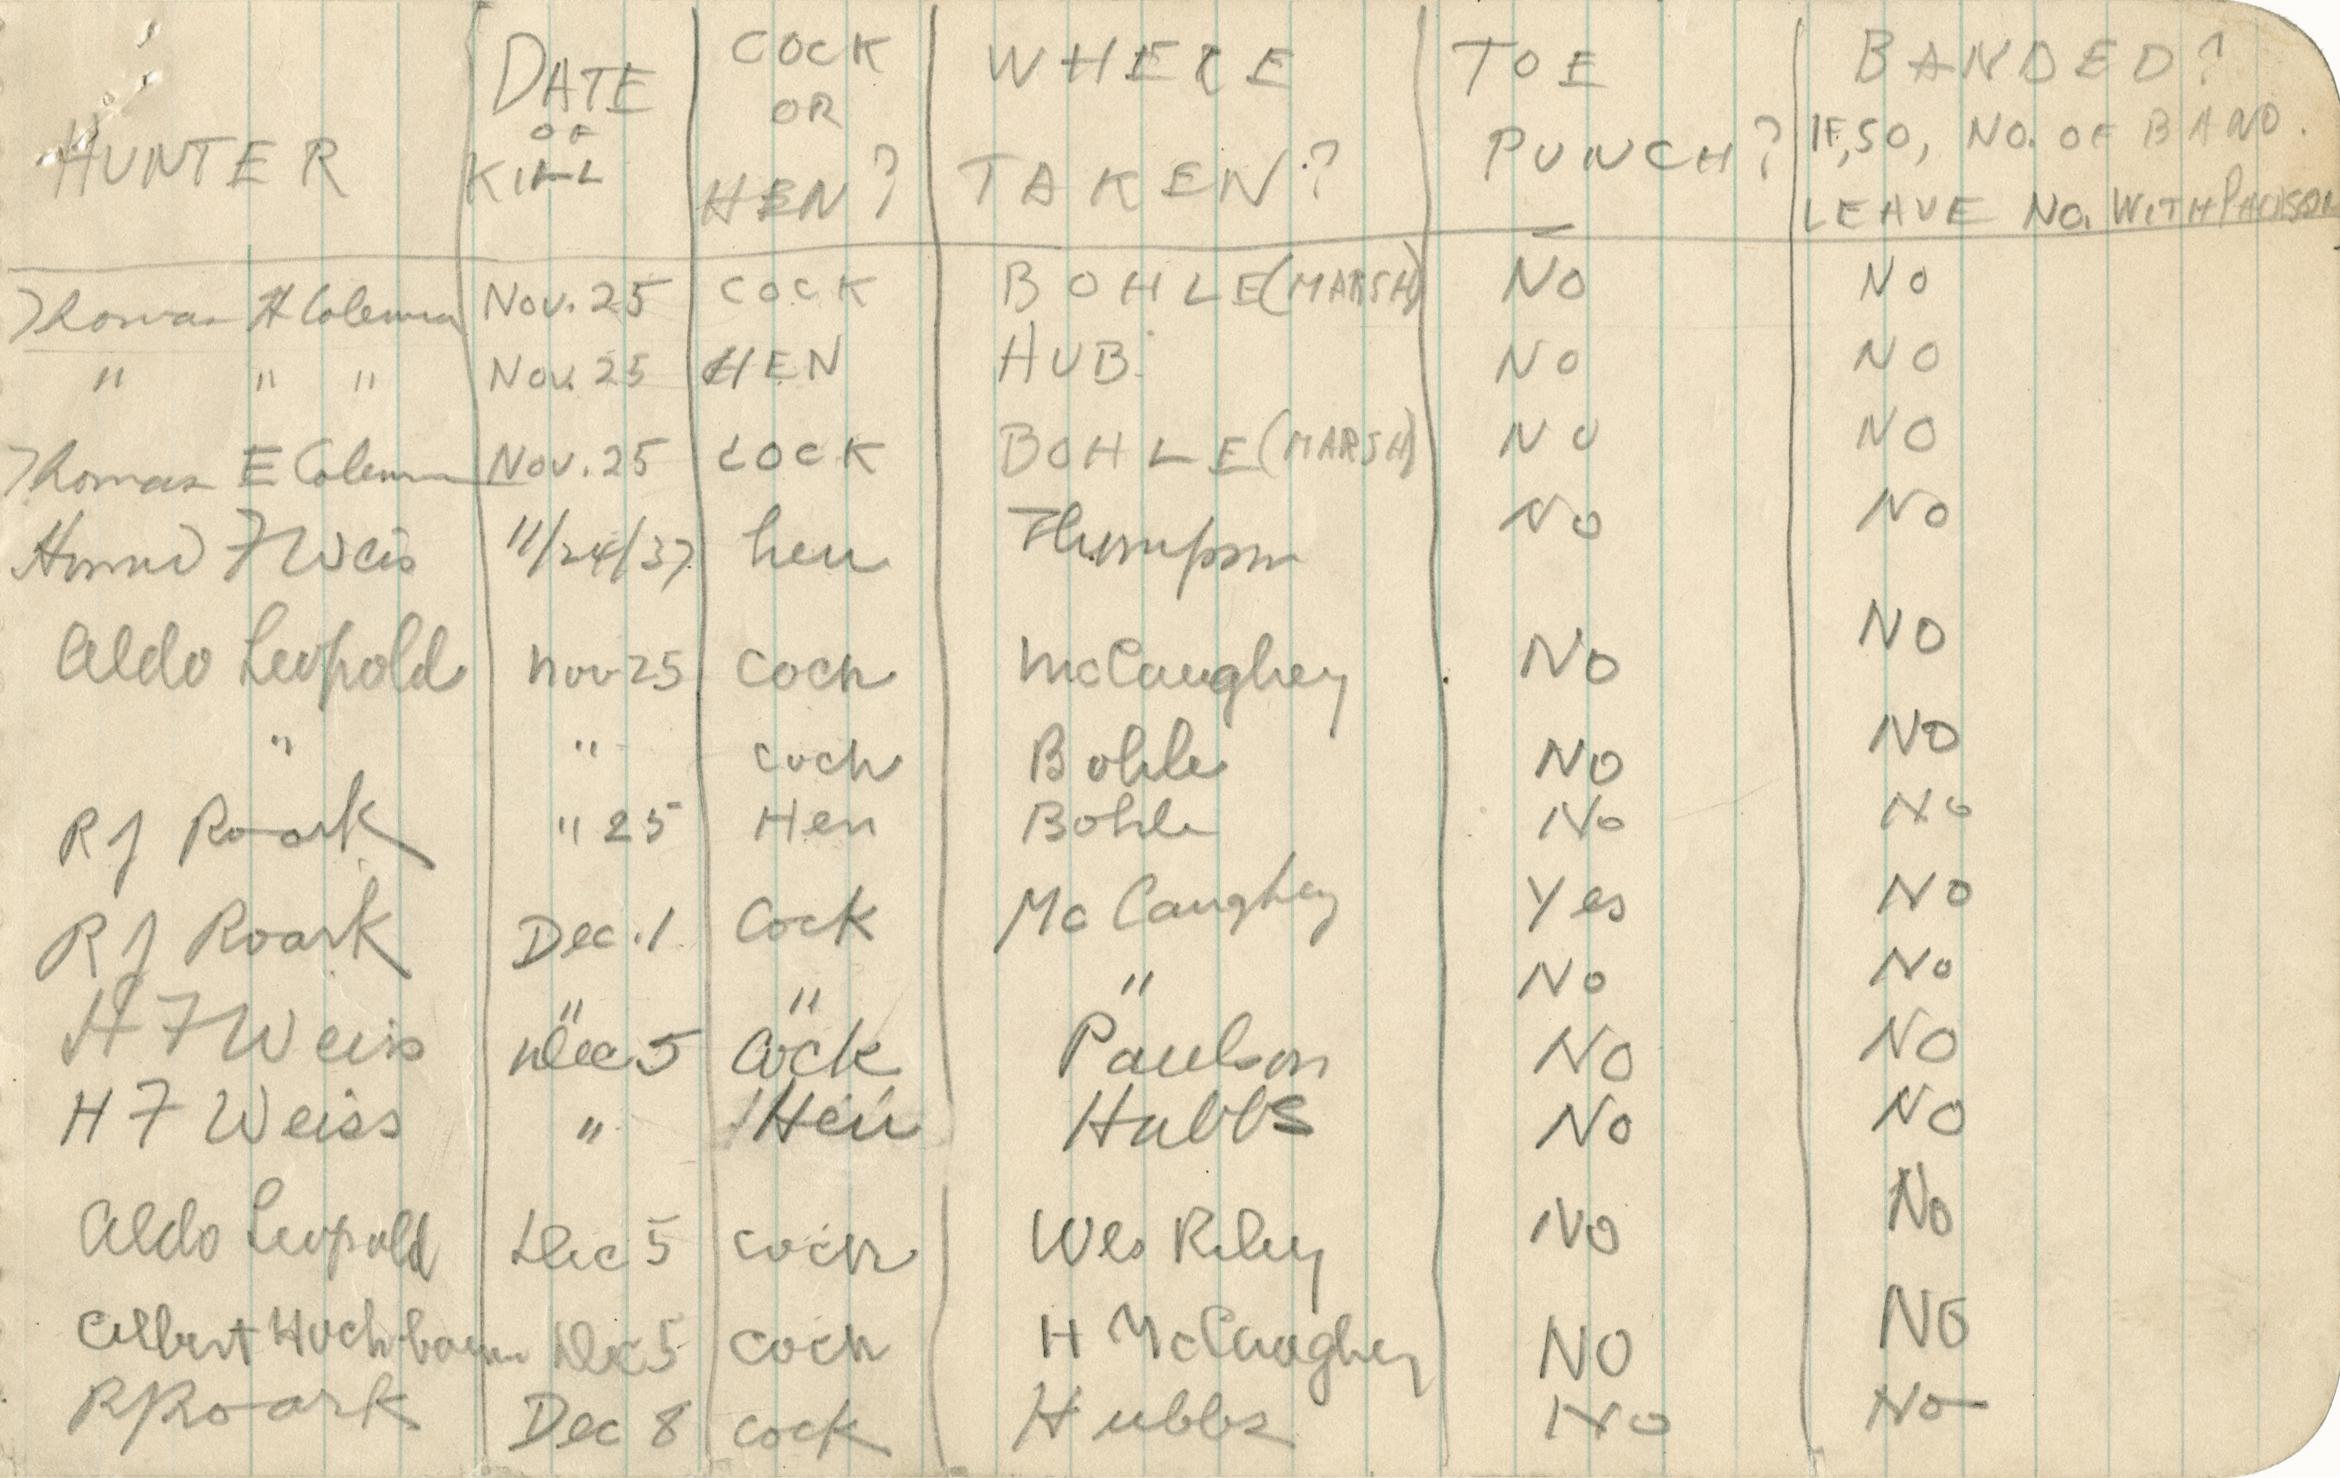 HUNTER DATE OF KILL COCK OR HEN? WHERE TAKEN? TOE PUNCH? BANDED? IF, SO, NO. OF BAND. LEAVE NO. WITH PAULSON
Thomas H Coleman Nov. 25 COCK BOHLE (MARSH) NO NO
" " " Nov. 25 HEN HUB. NO NO
Thomas E Coleman Nov. 25 COCK BOHLE (MARSH) NO NO
F Weis 11/24/37 hen Thompson No No
Aldo Leopold Nov 25 Cock McCaughey No NO
" " cock Bohle NO NO
R J Roark " 25 Hen Bohle No No
R J Roark Dec. 1 Cock McCaughey Yes No
" " " No No
H F Weiss Dec 5 Cock Paulson NO NO
H F Weiss " Hen Hubbs No NO
Aldo Leopold Dec 5 cock Wes Riley No No
Albert Hochbaum Dec 5 cock H McCaughey NO NO
R J Roark Dec 8 cock Hubbs No No